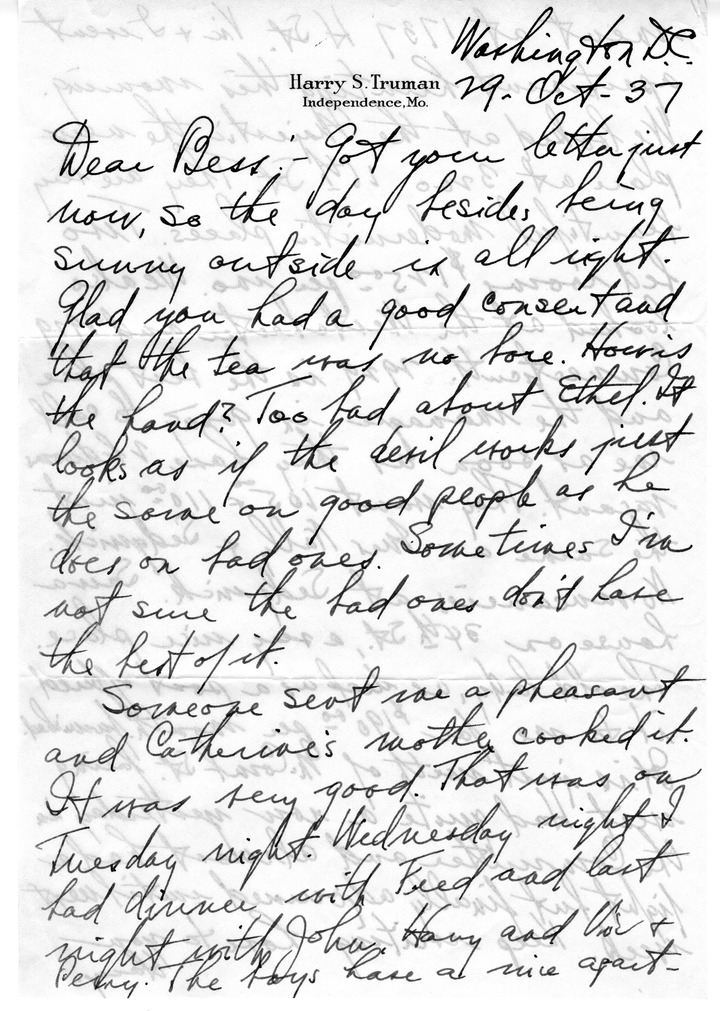 Washington D.C.
Harry S. Truman
Independence, Mo.
29-Oct-37
Dear Bess:- Got your letter just
now, so the day besides being
sunny outside is all right.
Glad you had a good consert and
that the tea was no bore. How is
the hand? Too bad about Ethel. It
looks as if the devil works just
the same on good people as he
does on bad ones. Sometimes I'm
not sure the bad ones don't have
the best of it.
Someone sent me a pheasant
and Catherine's mother cooked it.
It was very good. That was on
Tuesday night. Wednesday night I
had dinner with Fred and last
night with John. Harry and Vic &
The boys have a nice apart-